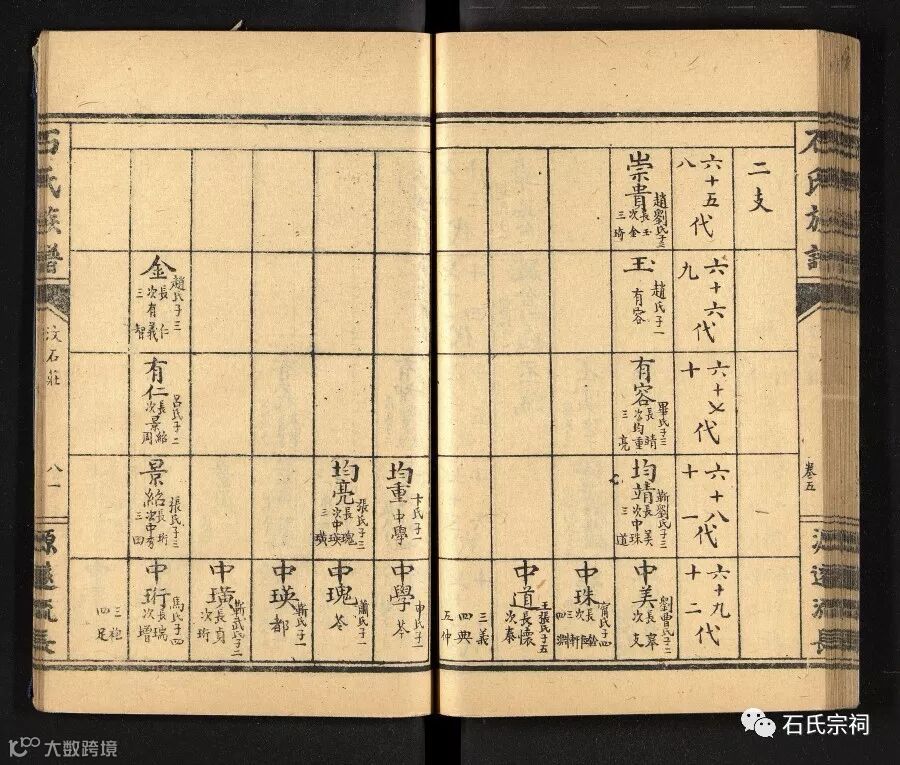 石氏族譜
卷五
源遠流長
二支
六十五代
八
六十六代
九
六十七代
十
六十八代
十一
六十九代
十二
崇貴
趙劉氏子三
長玉
次金
三琦
玉
趙氏子一
有容
有容
畢氏子三
長靖
次均重
三亮
均靖
靳劉氏子三
長美
次中珠
三道
中美
劉曹氏子二
長皋
次支
中珠
甯氏子四
中道
王張氏子五
長懷
次泰
三義
四典
五仲
均重
卞氏子一
中學
中學
申氏子一
芩
均亮
張氏子三
長瑰
次中瑛
三璜
中瑰
蕭氏子一
苓
中瑛
靳氏子一
都
中璜
靳武氏子二
長貞
次珩
金
趙氏子三
長仁
次有義
三智
有仁
呂氏子二
長紹
次景周
景紹
張氏子三
長珩
中珩
馬氏子四
長瑞
次增
四足
石氏族譜
汶石莊
八一
源遠流長
石氏宗祠
大数跨境